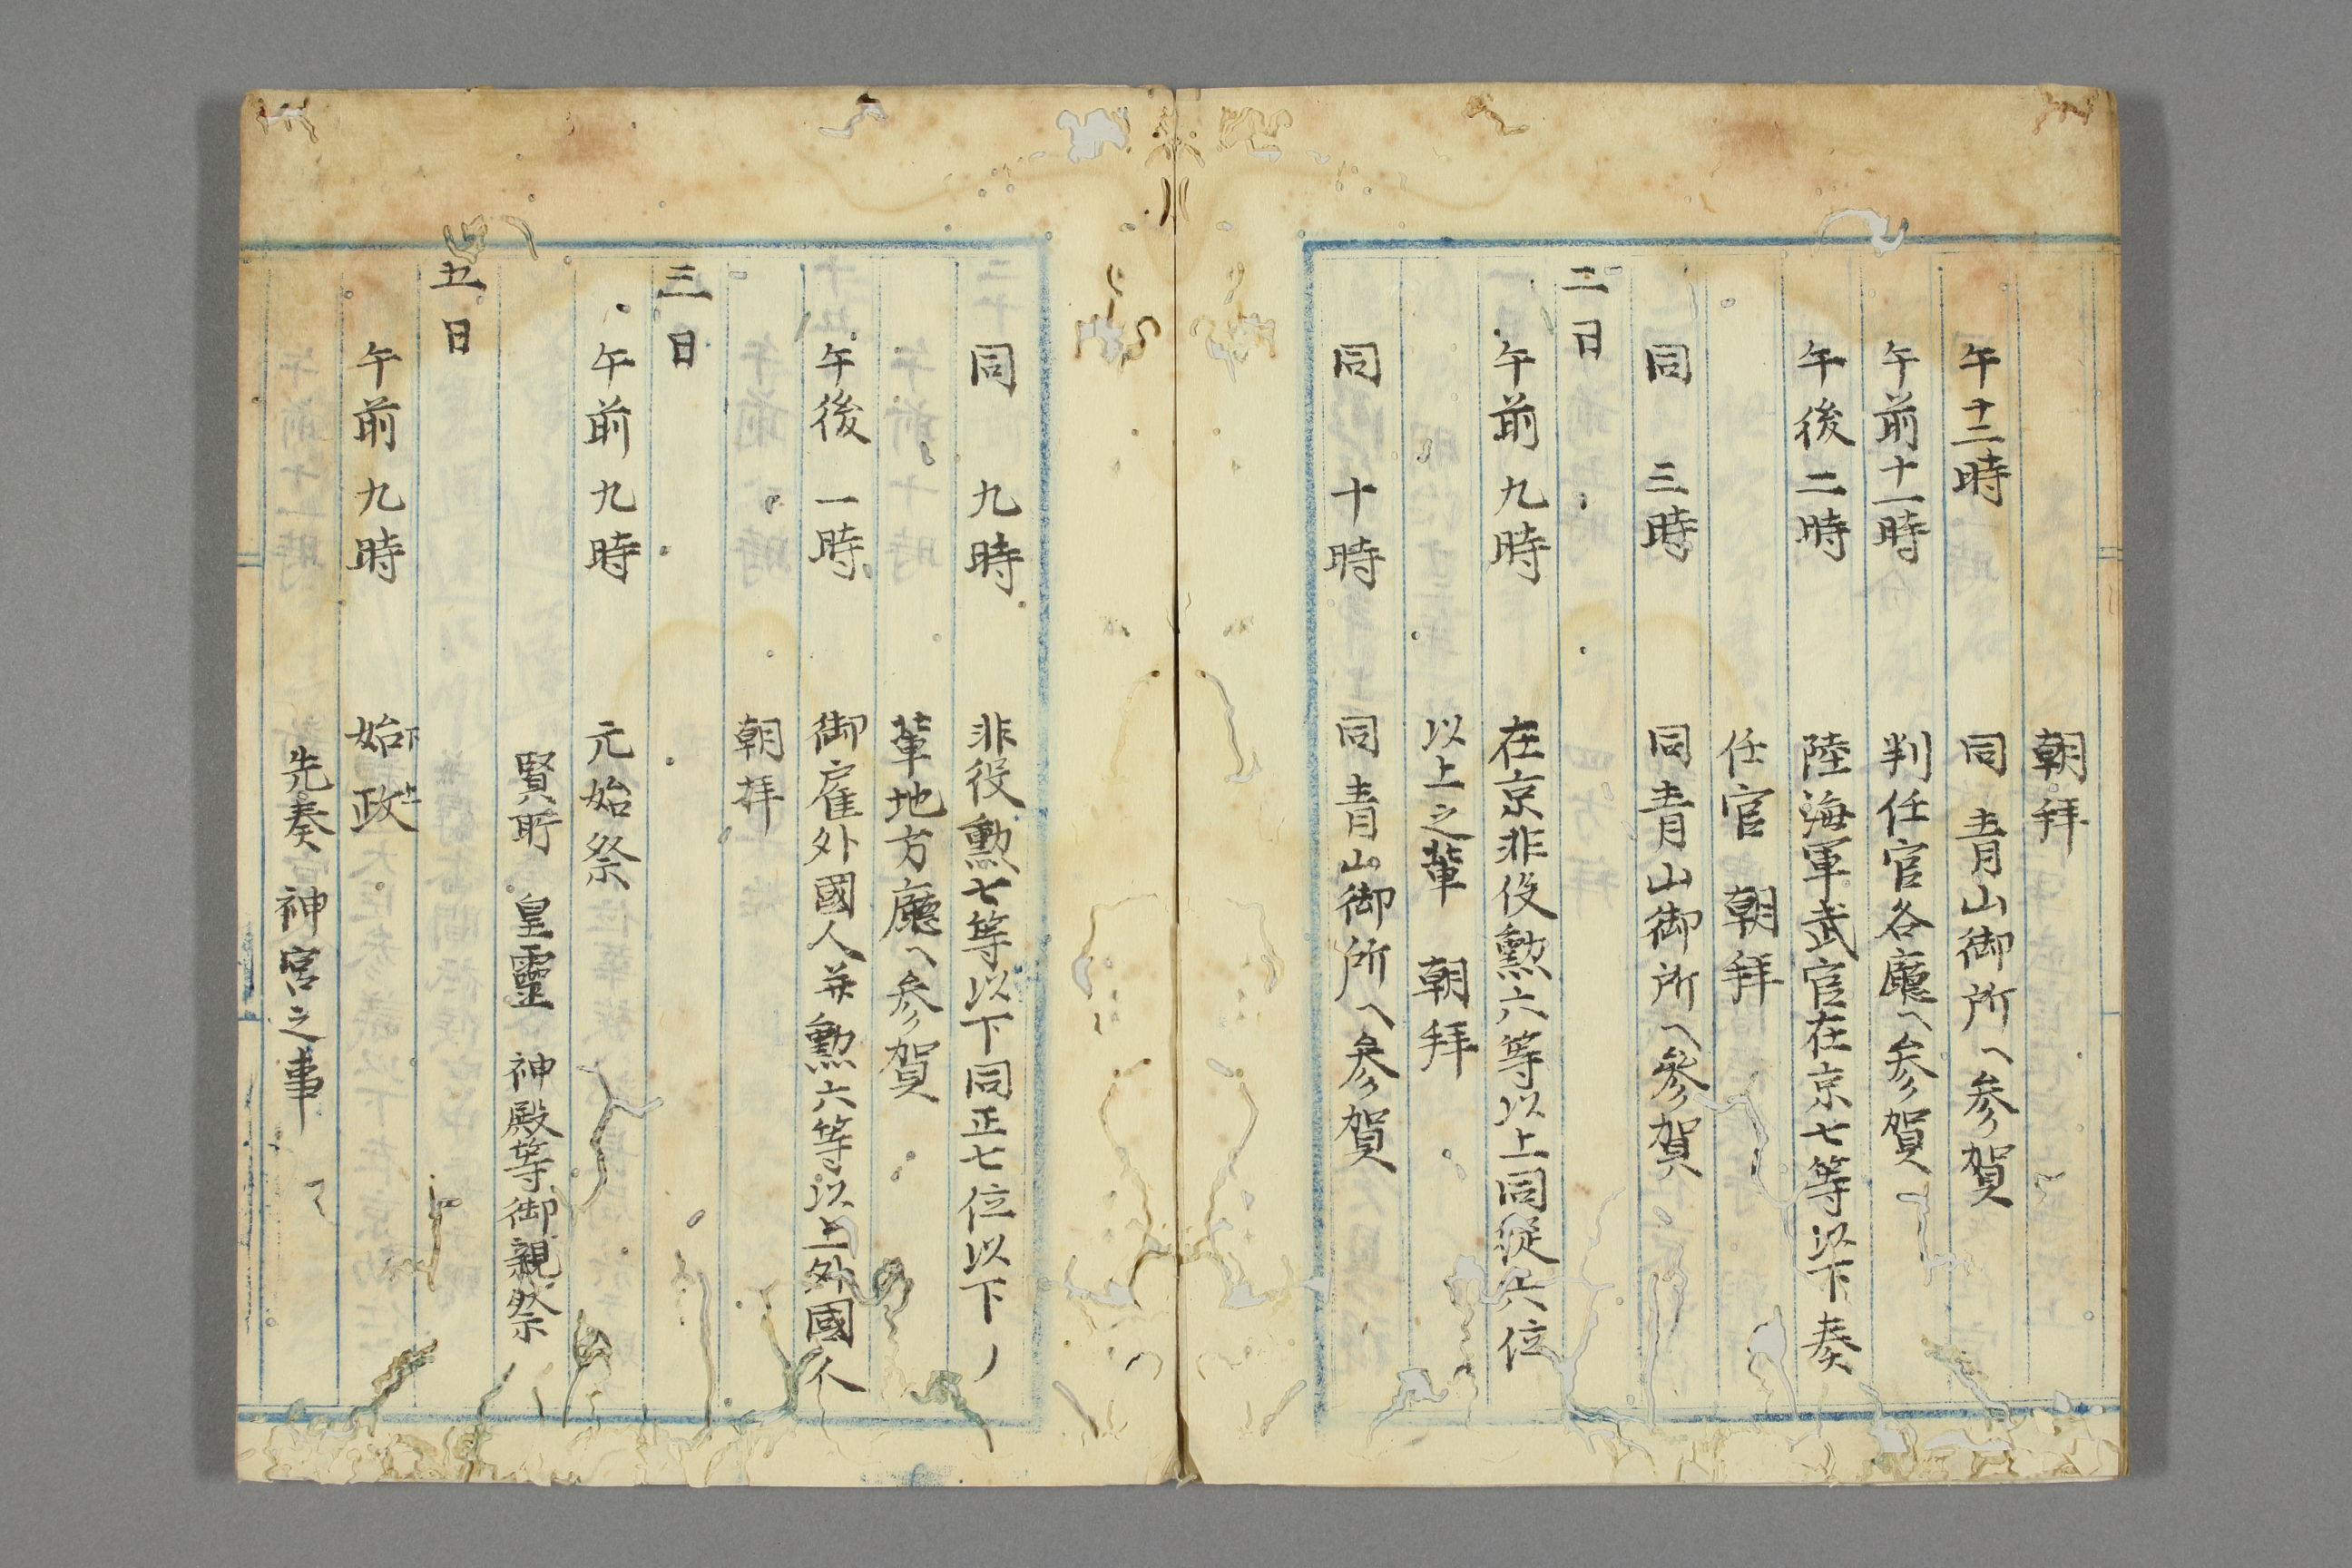 朝拜
午十二時 同青山御所ヘ参賀
午前十一時 判任官各廳ヘ参賀
午後二時 陸海軍武官在京七等以下奏
任官 朝拜
同 三時 同青山御所ヘ參賀
二日
午前九時 在京非役勲六等以上同従六位
以上之輩 朝拜
同 十時 同青山御所ヘ参賀
同 九時 非役勲七等以下同正七位以下ノ
輩地方廳ヘ参賀
午後一時 御雇外國人並勲六等以上外國人
朝拜
三日
午前九時 元始祭
賢所 皇靈 神殿等御親祭
五日
午前九時 政始
先奏 神宮之事